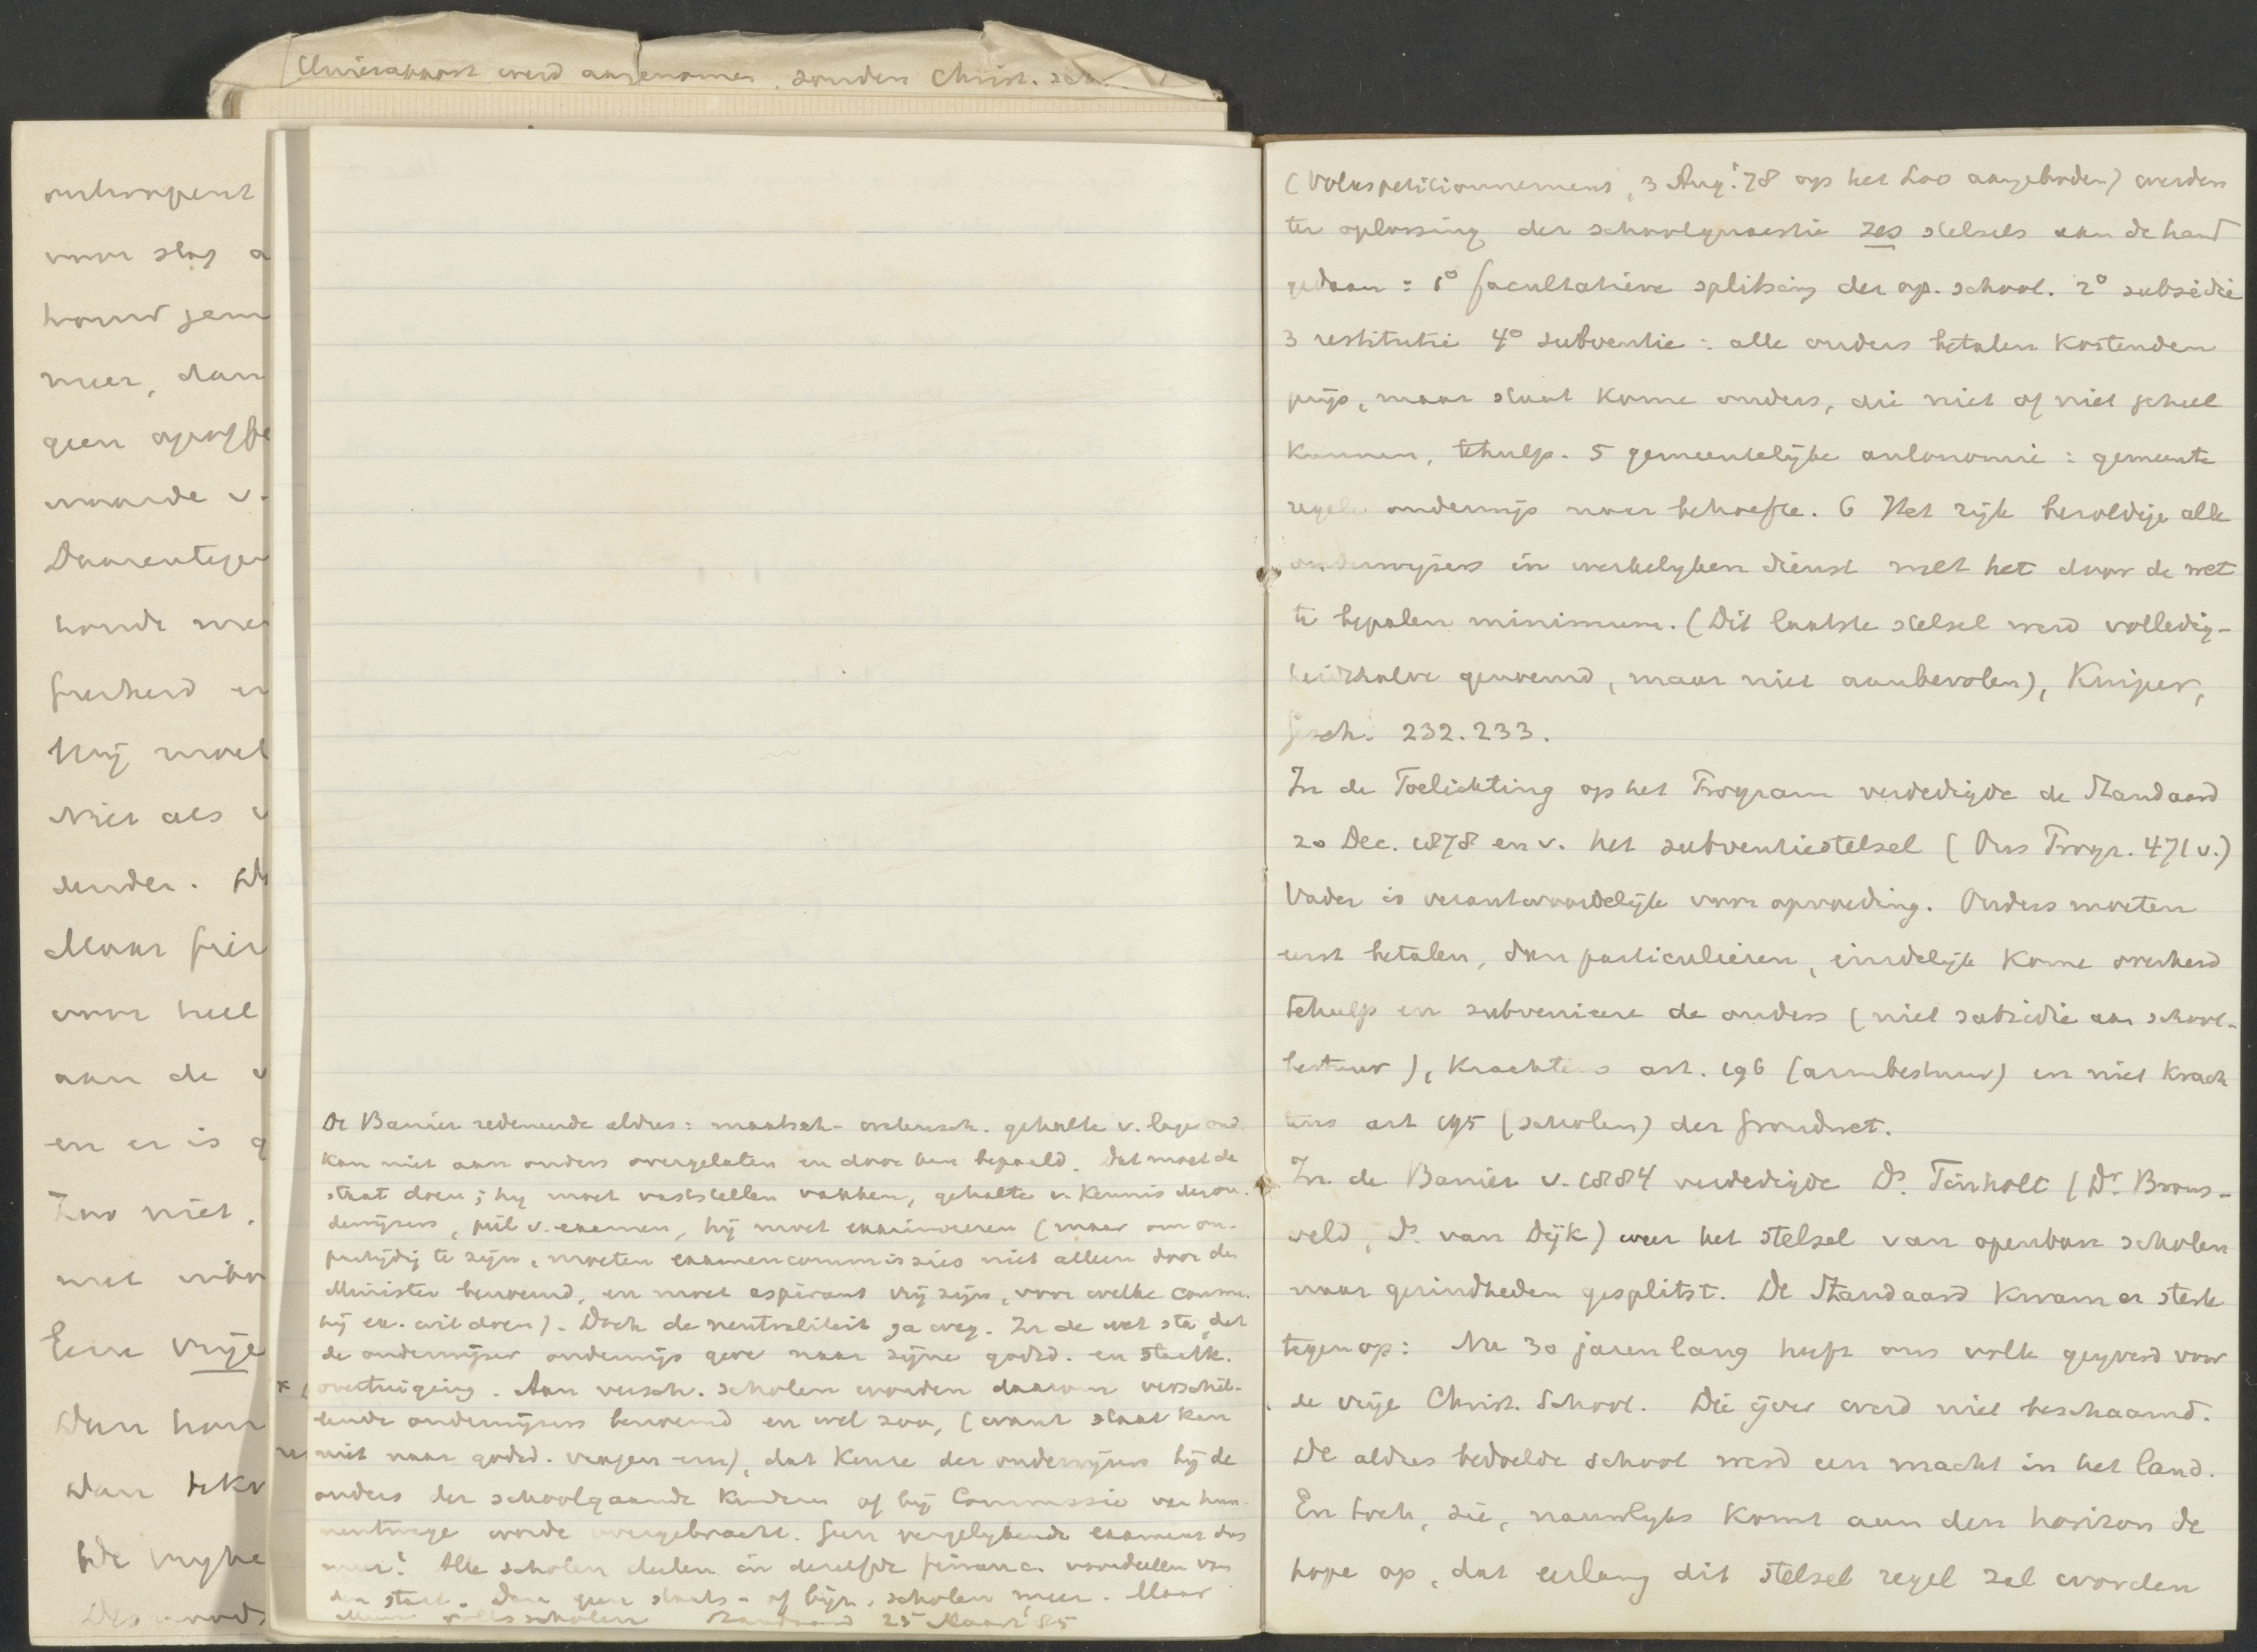 Unierapport werd aangenomen, zonder Christ. sch.
ontwapent
voor slag a
houw jem
meer, dan
geen
waarde v.
Daarentegen
houde me
frerherd en
Hij moet
Niet als
ender.
Maar
voor heel
aan de v
en er is g
Zoo niet,
met
Eene vrije
Dan hou
Dan bekr
bde vrijhe
Des noods
De Banier redeneerde aldus: maatsch- wetensch. gehalte v. lager ond.
kan niet aan ouders overgelaten en door hen bepaald. Dat moet de
staat doen; hij moet vaststellen vakken, gehalte v. kennis der on-
derwijzers, peil v. examen, hij moet examineeren (maar om on-
partijdig te zijn, moeten examencommissies niet alleen door den
Minister benoemd, en moet aspirant vrij zijn, voor welke comm.
hij ex. wil doen). Doch de neutraliteit ga weg. In de wet sta, dat
de onderwijzer onderwijs geve naar zijne godsd. en staatk.
overtuiging. Aan versch. scholen worden daarom verschil-
lende onderwijzers benoemd en wel zoo, (want staat kan
niet naar godsd. vragen enz), dat keuze der onderwijzers bij de
ouders der schoolgaande kinderen of bij Commissie van hun-
nentwege worde overgebracht. Geen vergelijkende examens dus
meer! Alle scholen deelen in dezelfde financ. voordeelen van
den staat. Dan geen staats- of bijz. scholen meer. Maar
volksscholen Standaard 25 Maart '85
(Volkspetitionnement, 3 Aug. '78 op het Loo aangeboden) werden
ter oplossing der schoolquaestie zes stelsels aan de hand
gedaan: 1° facultatieve splitsing der op. school. 2° subsidie
3 restitutie 4° subventie: alle ouders betalen kostenden
prijs, maar staat kome ouders, die niet of niet geheel
kunnen, tehulp. 5 gemeentelijke autonomie: gemeente
regele onderwijs naar behoefte. 6 Het rijk bezoldige alle
onderwijzers in werkelijken dienst met het door de wet
te bepalen minimum. (Dit laatste stelsel werd volledig-
heidshalve genoemd, maar niet aanbevolen), Kuiper,
Gesch. 232.233.
In de Toelichting op het Program verdedigde de Standaard
20 Dec. 1878 en v. het subventiestelsel (Ons Progr. 471 v.)
Vader is verantwoordelijk voor opvoeding. Ouders moeten
eerst betalen, dan particulieren, eindelijk kome overheid
tehulp en subvenieere de ouders (niet subsidie aan school-
bestuur), krachtens art. 196 (armbestuur) en niet krach
tens art 195 (scholen) der Grondwet.
In de Banier v. 1884 verdedigde Ds. Tinholt (Dr. Brons-
veld, Ds. van Dijk) weer het stelsel van openbare scholen
naar gezindheden gesplitst. De Standaard kwam er sterk
tegenop: Nu 30 jaren lang heeft ons volk geijverd voor
de vrije Christ. School. Die ijver werd niet beschaamd.
De aldus bedoelde school werd een macht in het land.
En toch, zie, nauwlijks komt aan den horizon de
hope op, dat eerlang dit stelsel regel zal worden